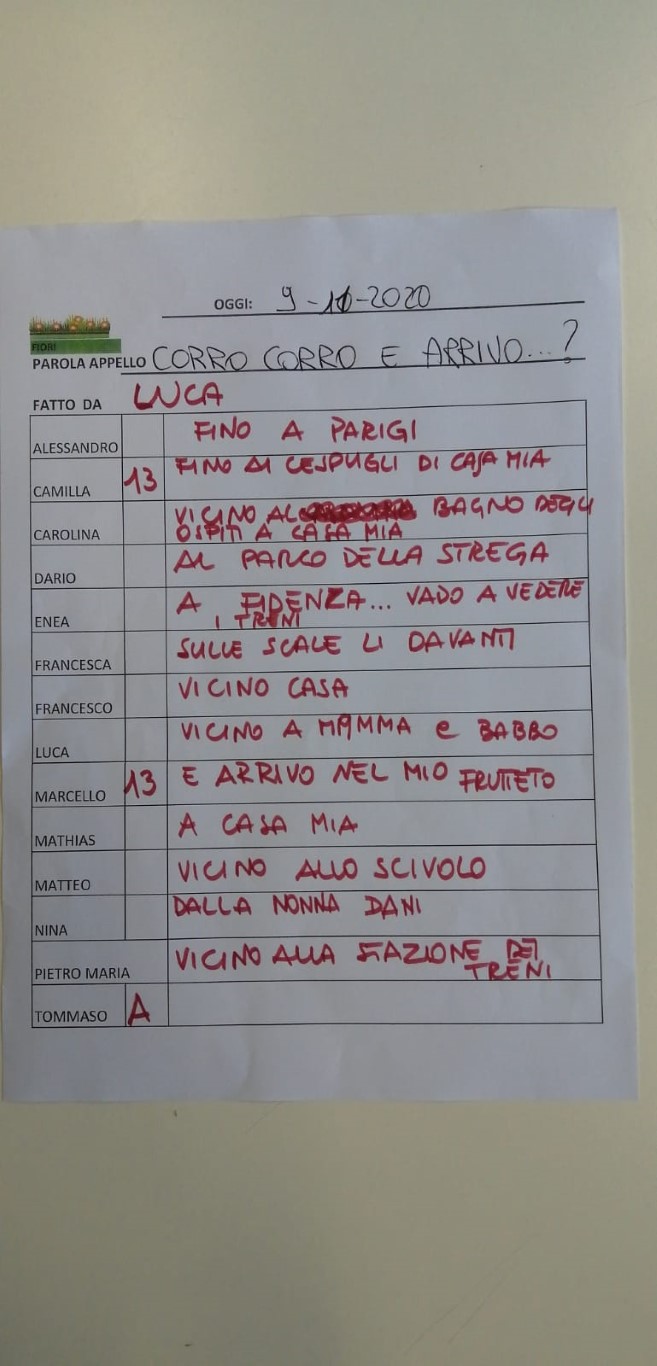 OGGI: 9-10-2020
FIORI
PAROLA APPELLO CORRO CORRO E ARRIVO...?
FATTO DA LUCA
ALESSANDRO FINO A PARIGI
CAMILLA 13 FINO AI CESPUGLI DI CASA MIA
CAROLINA VICINO AL BAGNO DEGLI
OSPITI A CASA MIA
DARIO AL PARCO DELLA STREGA
ENEA A FIDENZA... VADO A VEDERE
I TRENI
FRANCESCA SULLE SCALE LI DAVANTI
FRANCESCO VICINO CASA
LUCA VICINO A MAMMA e BABBO
MARCELLO 13 E ARRIVO NEL MIO FRUTTETO
MATHIAS A CASA MIA
MATTEO VICINO ALLO SCIVOLO
NINA DALLA NONNA DANI
PIETRO MARIA VICINO ALLA STAZIONE DEI
TRENI
TOMMASO A